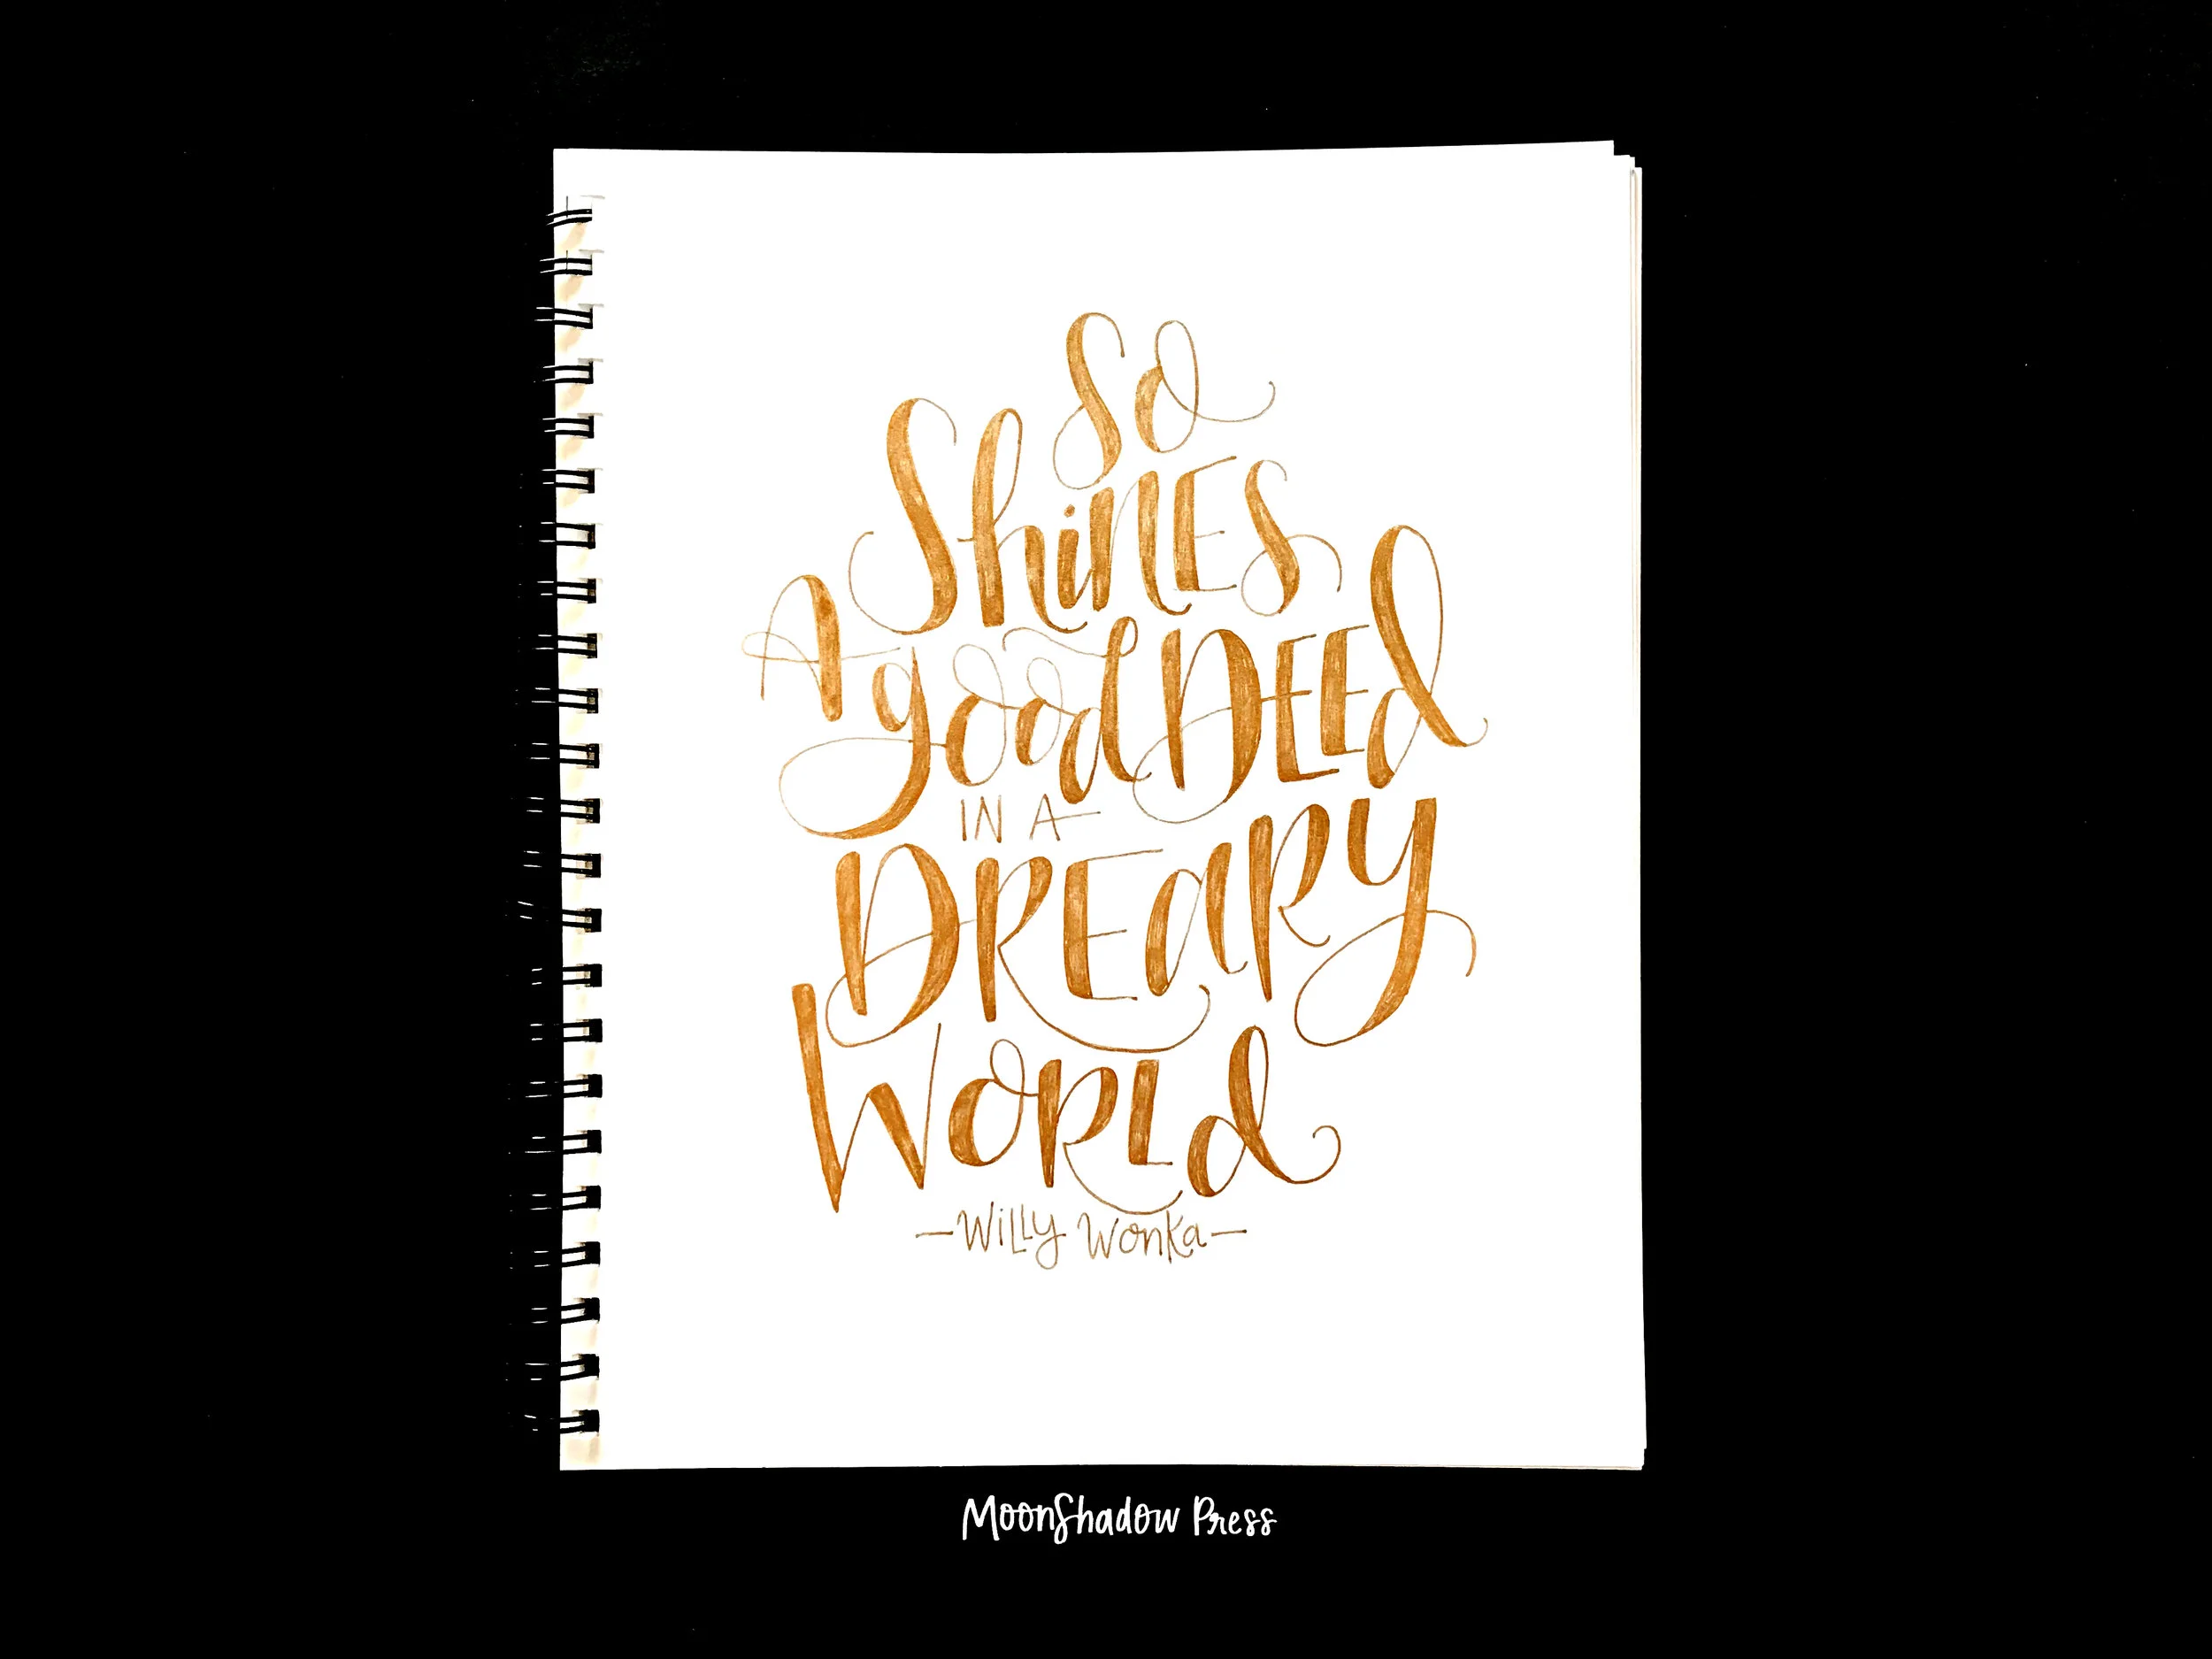 So
ShiNES
A good DEEd
IN A
DREARY
WORLd
—WiLLy Wonka—
MoonShadow Press